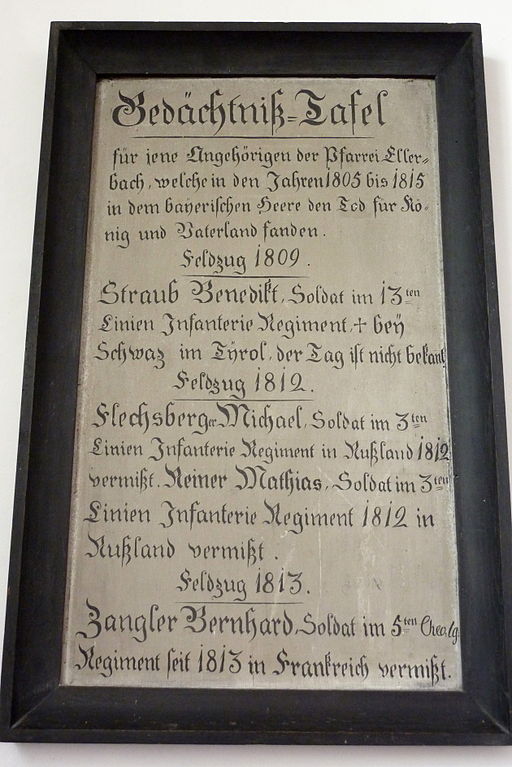 Gedächtniß-Tafel
für jene Angehörigen der Pfarrei Eller-
bach, welche in den Jahren 1805 bis 1815
in dem bayerischen Heere den Tod für Kö-
nig und Vaterland fanden.
Feldzug 1809.
Straub Benedikt, Soldat im 13ten
Linien Infanterie Regiment, † bey
Schwaz im Tyrol, der Tag ist nicht bekant
Feldzug 1812.
Flechsberger Michael, Soldat im 3ten
Linien Infanterie Regiment in Rußland 1812
vermißt. Reiner Mathias, Soldat im 3ten
Linien Infanterie Regiment 1812 in
Rußland vermißt.
Feldzug 1813.
Zangler Bernhard, Soldat im 5ten
Regiment seit 1813 in Frankreich vermißt.